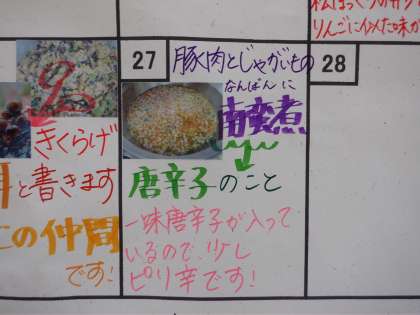 松ぼっくりの
りんごに似た味が
27
豚肉とじゃがいもの
なんばんに
南蛮煮
28
きくらげ
耳と書きます
の仲間
です!
唐辛子のこと
一味唐辛子が入って
いるので、少し
ピリ辛です!